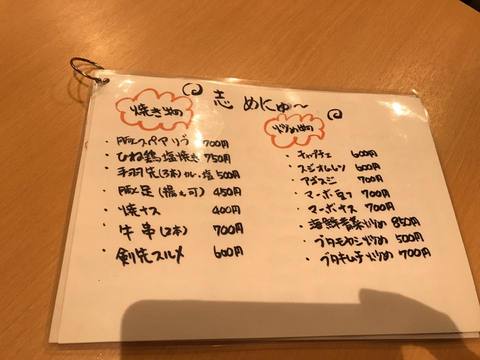 志 めにゅ〜
焼き物
豚スペアリブ 700円
ひね鶏塩焼き 750円
手羽先(3本)カレー、塩 500円
豚足(揚げ可) 450円
焼ナス 400円
牛串(2本) 700円
剣先スルメ 600円
炒め物
チャプチェ 600円
スジオムレツ 600円
アゴスジ 700円
マーボ豆フ 700円
マーボナス 700円
海鮮青菜炒め 850円
ブタモヤシ炒め 500円
ブタキムチ炒め 700円